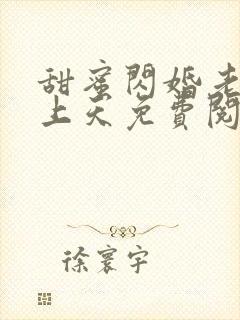 甜蜜閃婚老
上天免費閱
徐寰宇